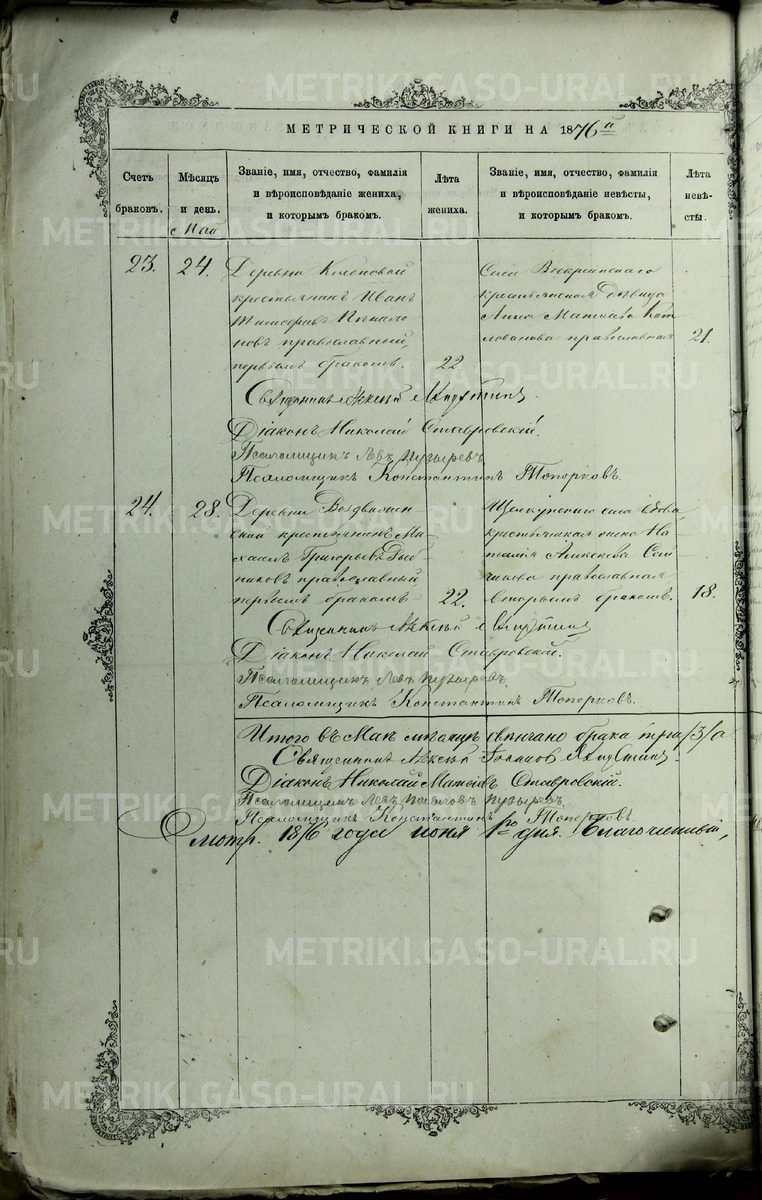 МЕТРИЧЕСКОЙ КНИГИ НА 1876й
Счетъ браковъ.
Мѣсяцъ и день.
Званіе, имя, отчество, фамилія и вѣроисповѣданіе жениха, и которымъ бракомъ.
Лѣта жениха.
Званіе, имя, отчество, фамилія и вѣроисповѣданіе невѣсты, и которымъ бракомъ.
Лѣта невѣсты.
Май
23. 24.
Деревни
крестьянинъ Иванъ
православный
первымъ бракомъ.
22
Села Воскресенскаго
крестьянская дѣвица
Анна
православная
21.
Священникъ Алексѣй
Діаконъ Николай Ставровскій.
Псаломщикъ Левъ Пузыревъ
Псаломщикъ Константинъ Топорковъ.
24. 28.
Деревни Воздвижен
ской крестьянинъ Ми
хаилъ Григорьевъ
православный
первымъ бракомъ
22.
Щелкунскаго села вдова,
крестьянская жена На
талія Алексѣева
православная
вторымъ бракомъ.
18.
Священникъ Алексѣй
Діаконъ Николай Ставровскій.
Псаломщикъ Левъ Пузыревъ
Псаломщикъ Константинъ Топорковъ.
Итого въ Маѣ мѣсяцѣ вѣнчано брака три /3/а
Священникъ Алексѣй
Діаконъ Николай Матѳіевъ Ставровскій.
Псаломщикъ Левъ Павловъ Пузыревъ
Псаломщикъ Константинъ Топорковъ.
Смотр. 1876 года июня 1го дня. Благочинный,
METRIKI.GASO-URAL.RU